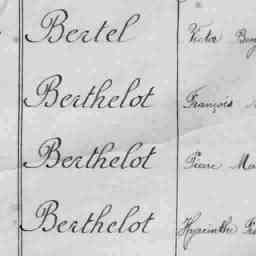 Bertel Victor
Berthelot François
Berthelot Pierre
Berthelot Hyacinthe